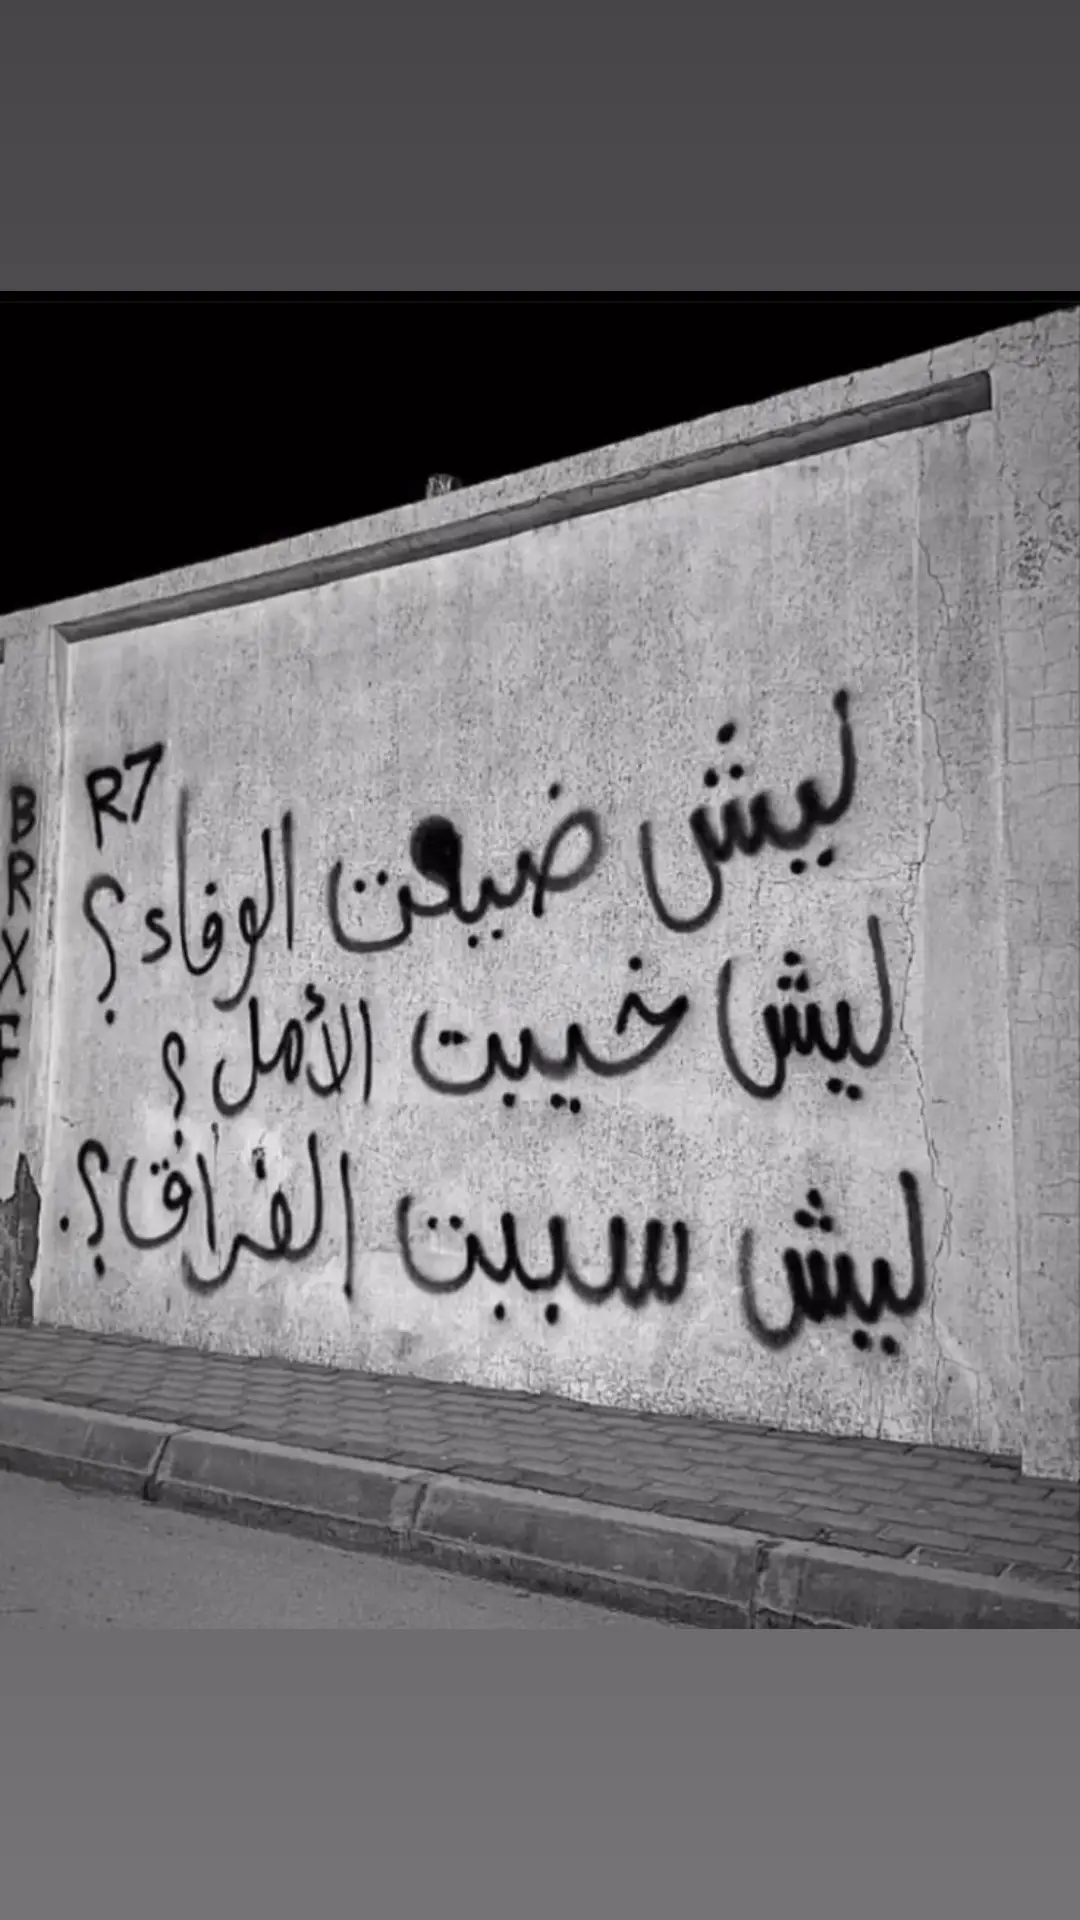 ليش ضيعت الوفاء ؟
R7
ليش خيبت الأمل ؟
ليش سببت الفراق ؟.
BRXF